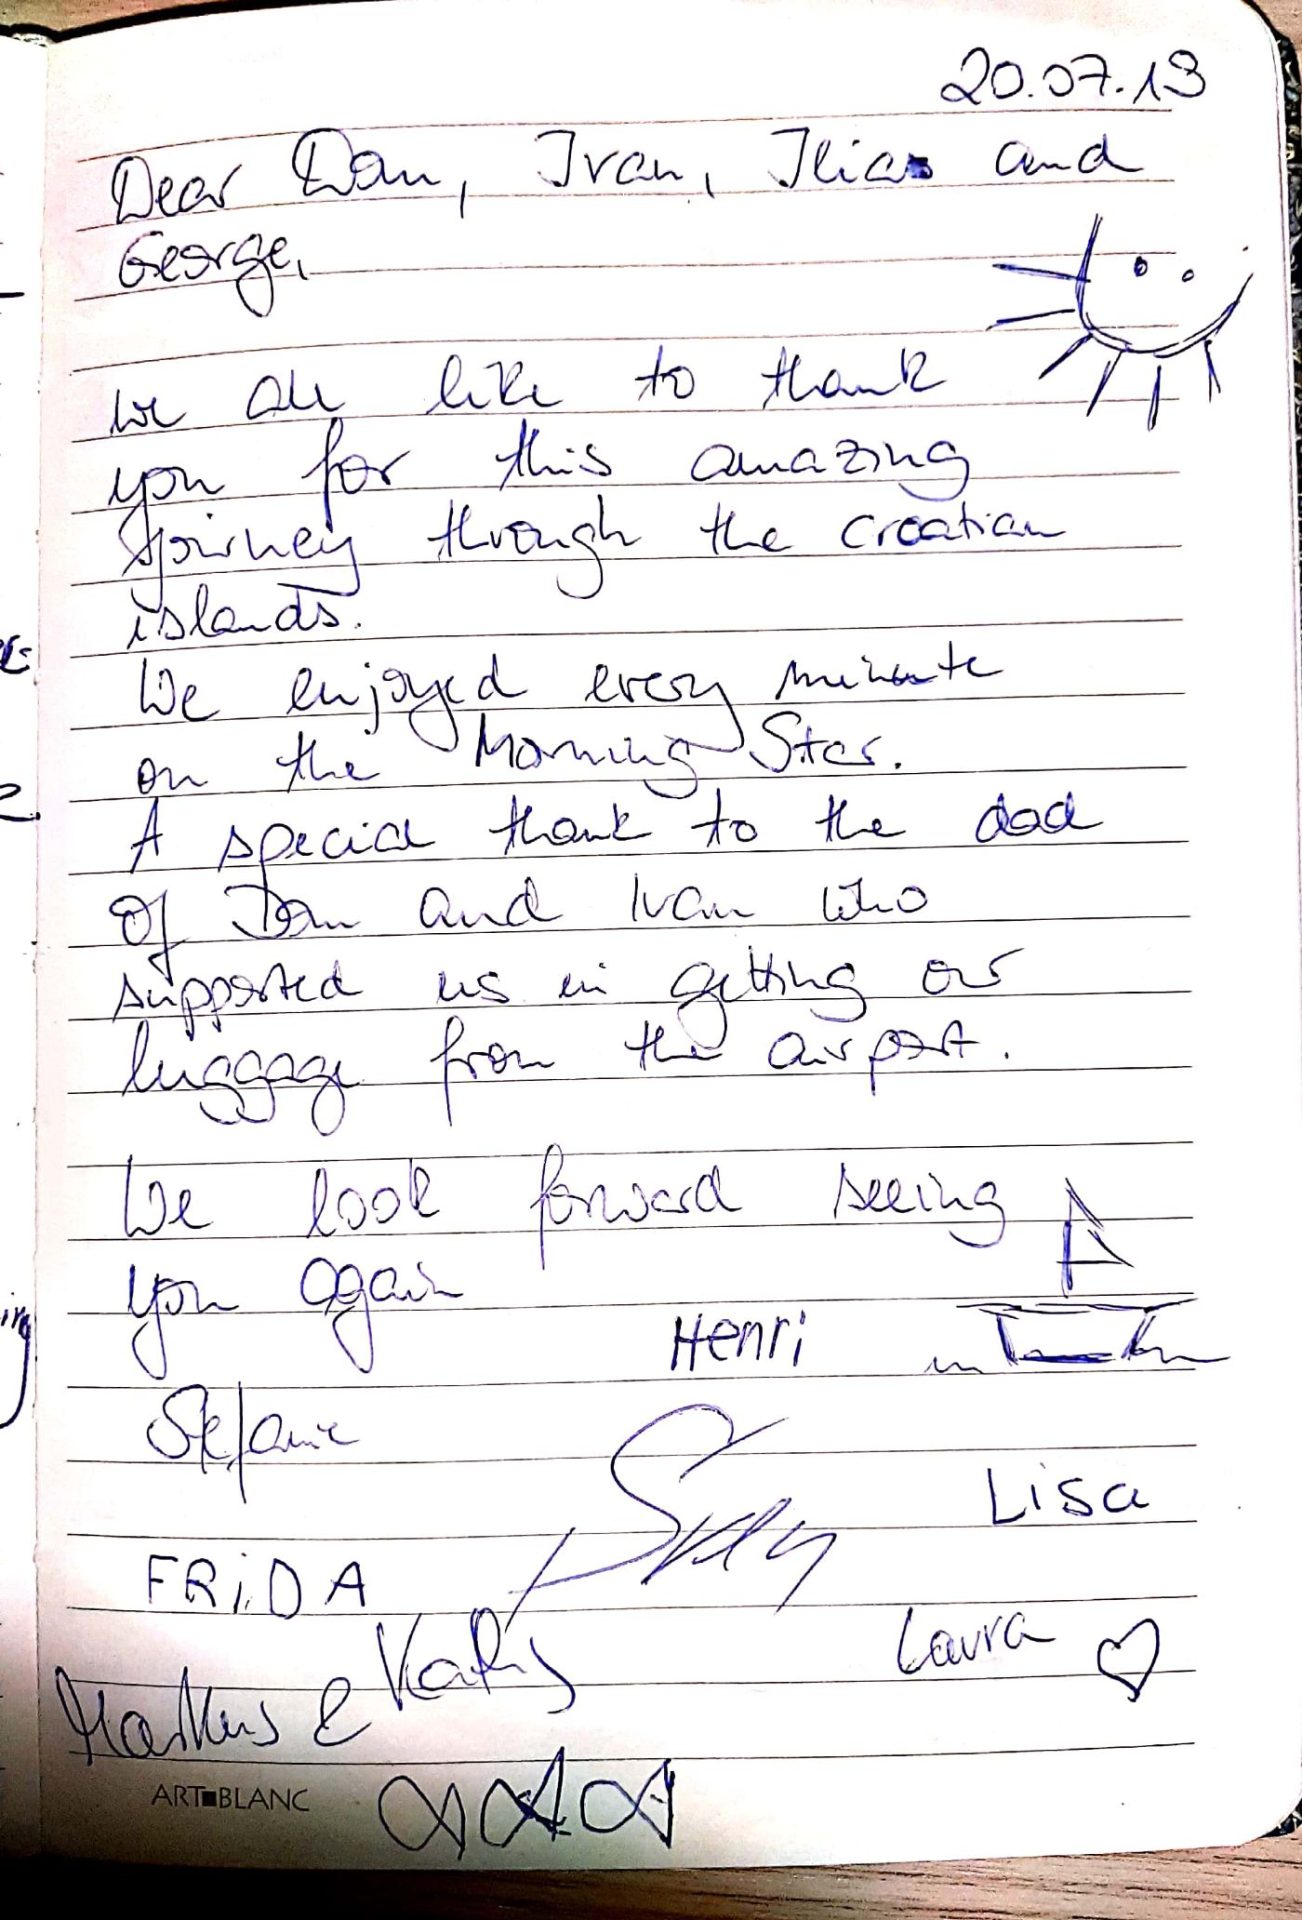 20.07.19
Dear Dan, Ivan, Ilias and
George,
We all like to thank
you for this amazing
journey through the croatian
islands.
We enjoyed every minute
on the Morning Star.
A special thank to the dad
of Dan and Ivan who
supported us in getting our
luggage from the airport.
We look forward seeing
you again
Henri
Stefanie
Lisa
FRiDA
Laura
Markus &
ART■BLANC